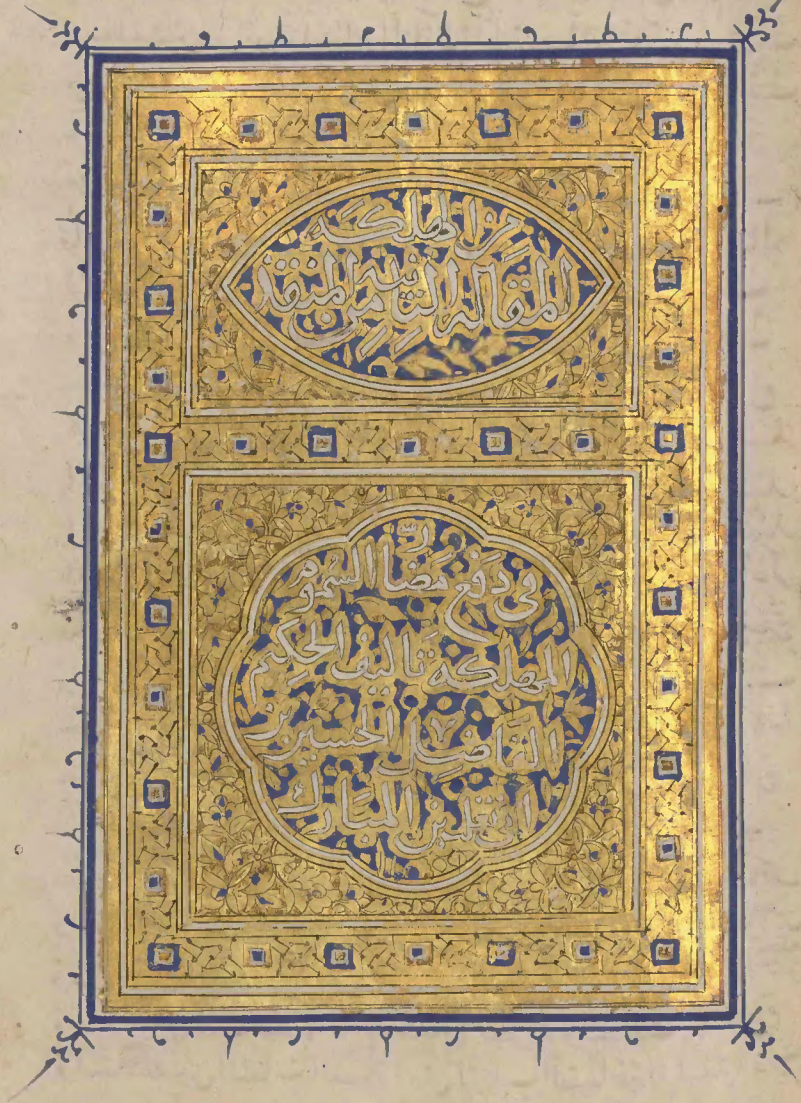 المقاله الثانيه من المنقذ
من الهلكه
في دفع مضار السموم
المهلكة تاليف الحكيم
الفاضل الحسين بن
ابي ثعلب بن المبارك